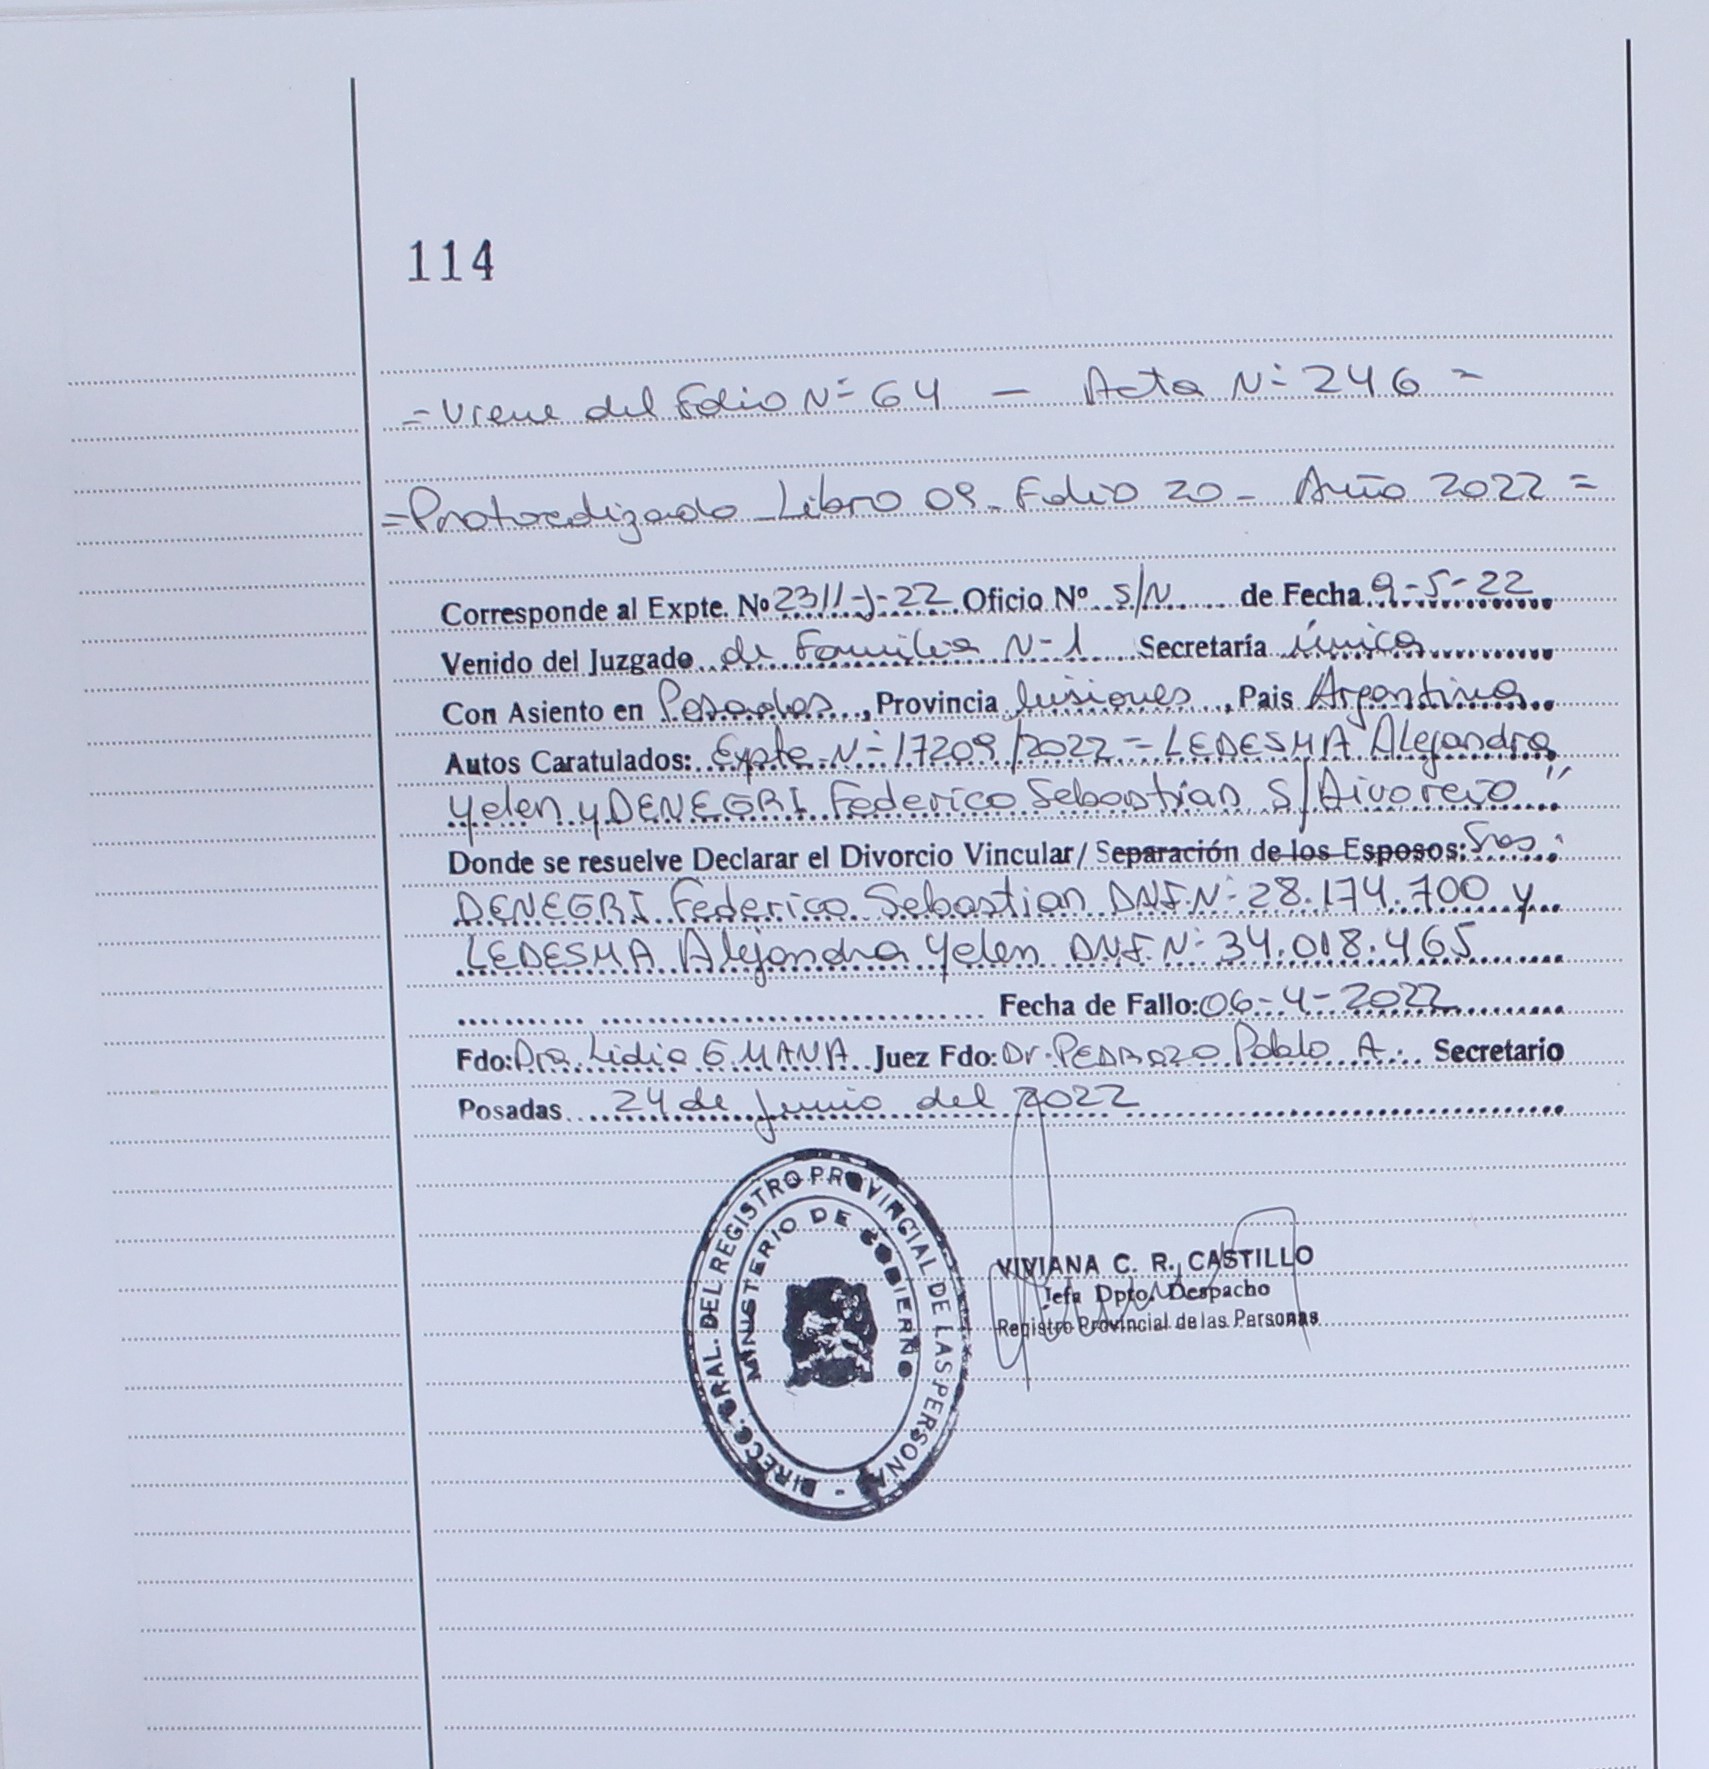 114
= Viene del Folio N= 64 — Acta N= 246 =
= Protocolizado Libro 09 - Folio 20 - Año 2022 =
Corresponde al Expte. Nº 2311-J-22 Oficio Nº S/N de Fecha 9-5-22
Venido del Juzgado de Familia N-1 Secretaría única
Con Asiento en Posadas, Provincia Misiones, Pais Argentina
Autos Caratulados: Expte N= 17209/2022 = LEDESMA Alejandra
Yelen y DENEGRI Federico Sebastian S/Divorcio"
Donde se resuelve Declarar el Divorcio Vincular/ Separación de los Esposos: Sres:
DENEGRI Federico Sebastian DNI.N= 28.174.700 y
LEDESMA Alejandra Yelen DNI.N= 34.018.465
Fecha de Fallo: 06-4-2022
Fdo: Dra Lidia E MANA Juez Fdo: Dr. PEDROZO Pablo A. Secretario
Posadas 24 de Junio del 2022
DIRECC. GRAL. DEL REGISTRO PROVINCIAL DE LAS PERSONAS -
MINISTERIO DE GOBIERNO
VIVIANA C. R. CASTILLO
Jefa Dpto. Despacho
Registro Provincial de las Personas